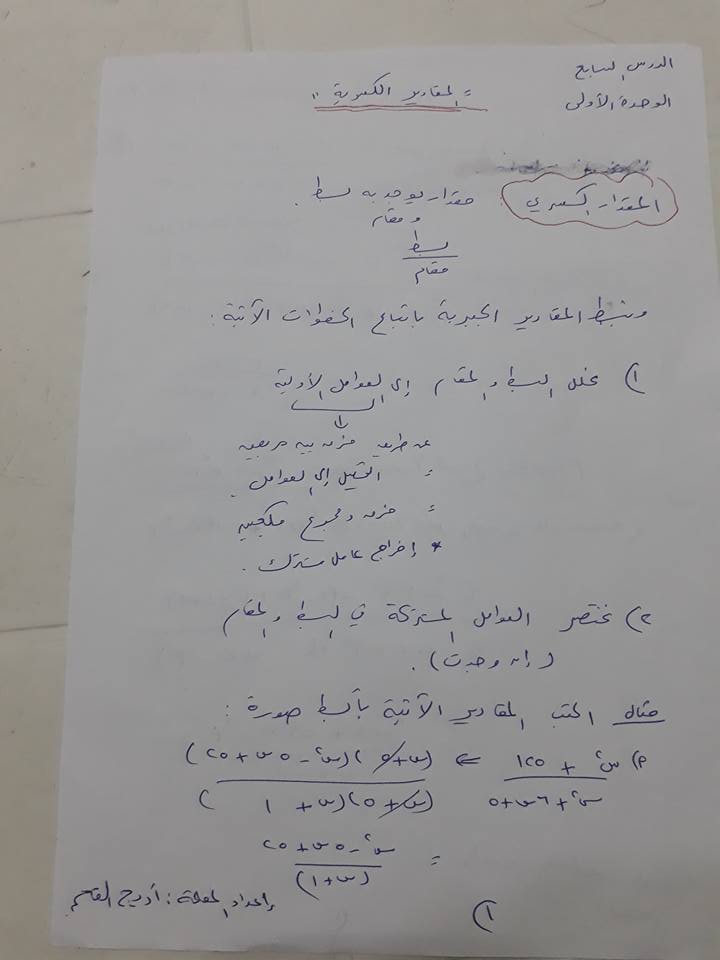 الدرس السابع
الوحدة الأولى
" المقادير الكسرية "
المقدار الكسري : مقدار يوجد به بسط
و مقام
بسط
مقام
ونبسط المقادير الجبرية باتباع الخطوات الآتية :
١) نحلل البسط والمقام إلى العوامل الأولية
عن طريق فرق بين مربعين
= التحليل إلى العوامل .
= فرق ومجموع مكعبين
* إخراج عامل مشترك .
٢) نختصر العوامل المشتركة في البسط والمقام
(إن وجدت) .
مثال اكتب المقادير الآتية بأبسط صورة :
أ) س³ + ١٢٥ / س² + ٦س + ٥ ⇐ (س + ٥)(س² - ٥س + ٢٥) / (س + ٥)(س + ١)
= س² - ٥س + ٢٥ / (س + ١)
إعداد المعلمة : أريج القاسم
١)